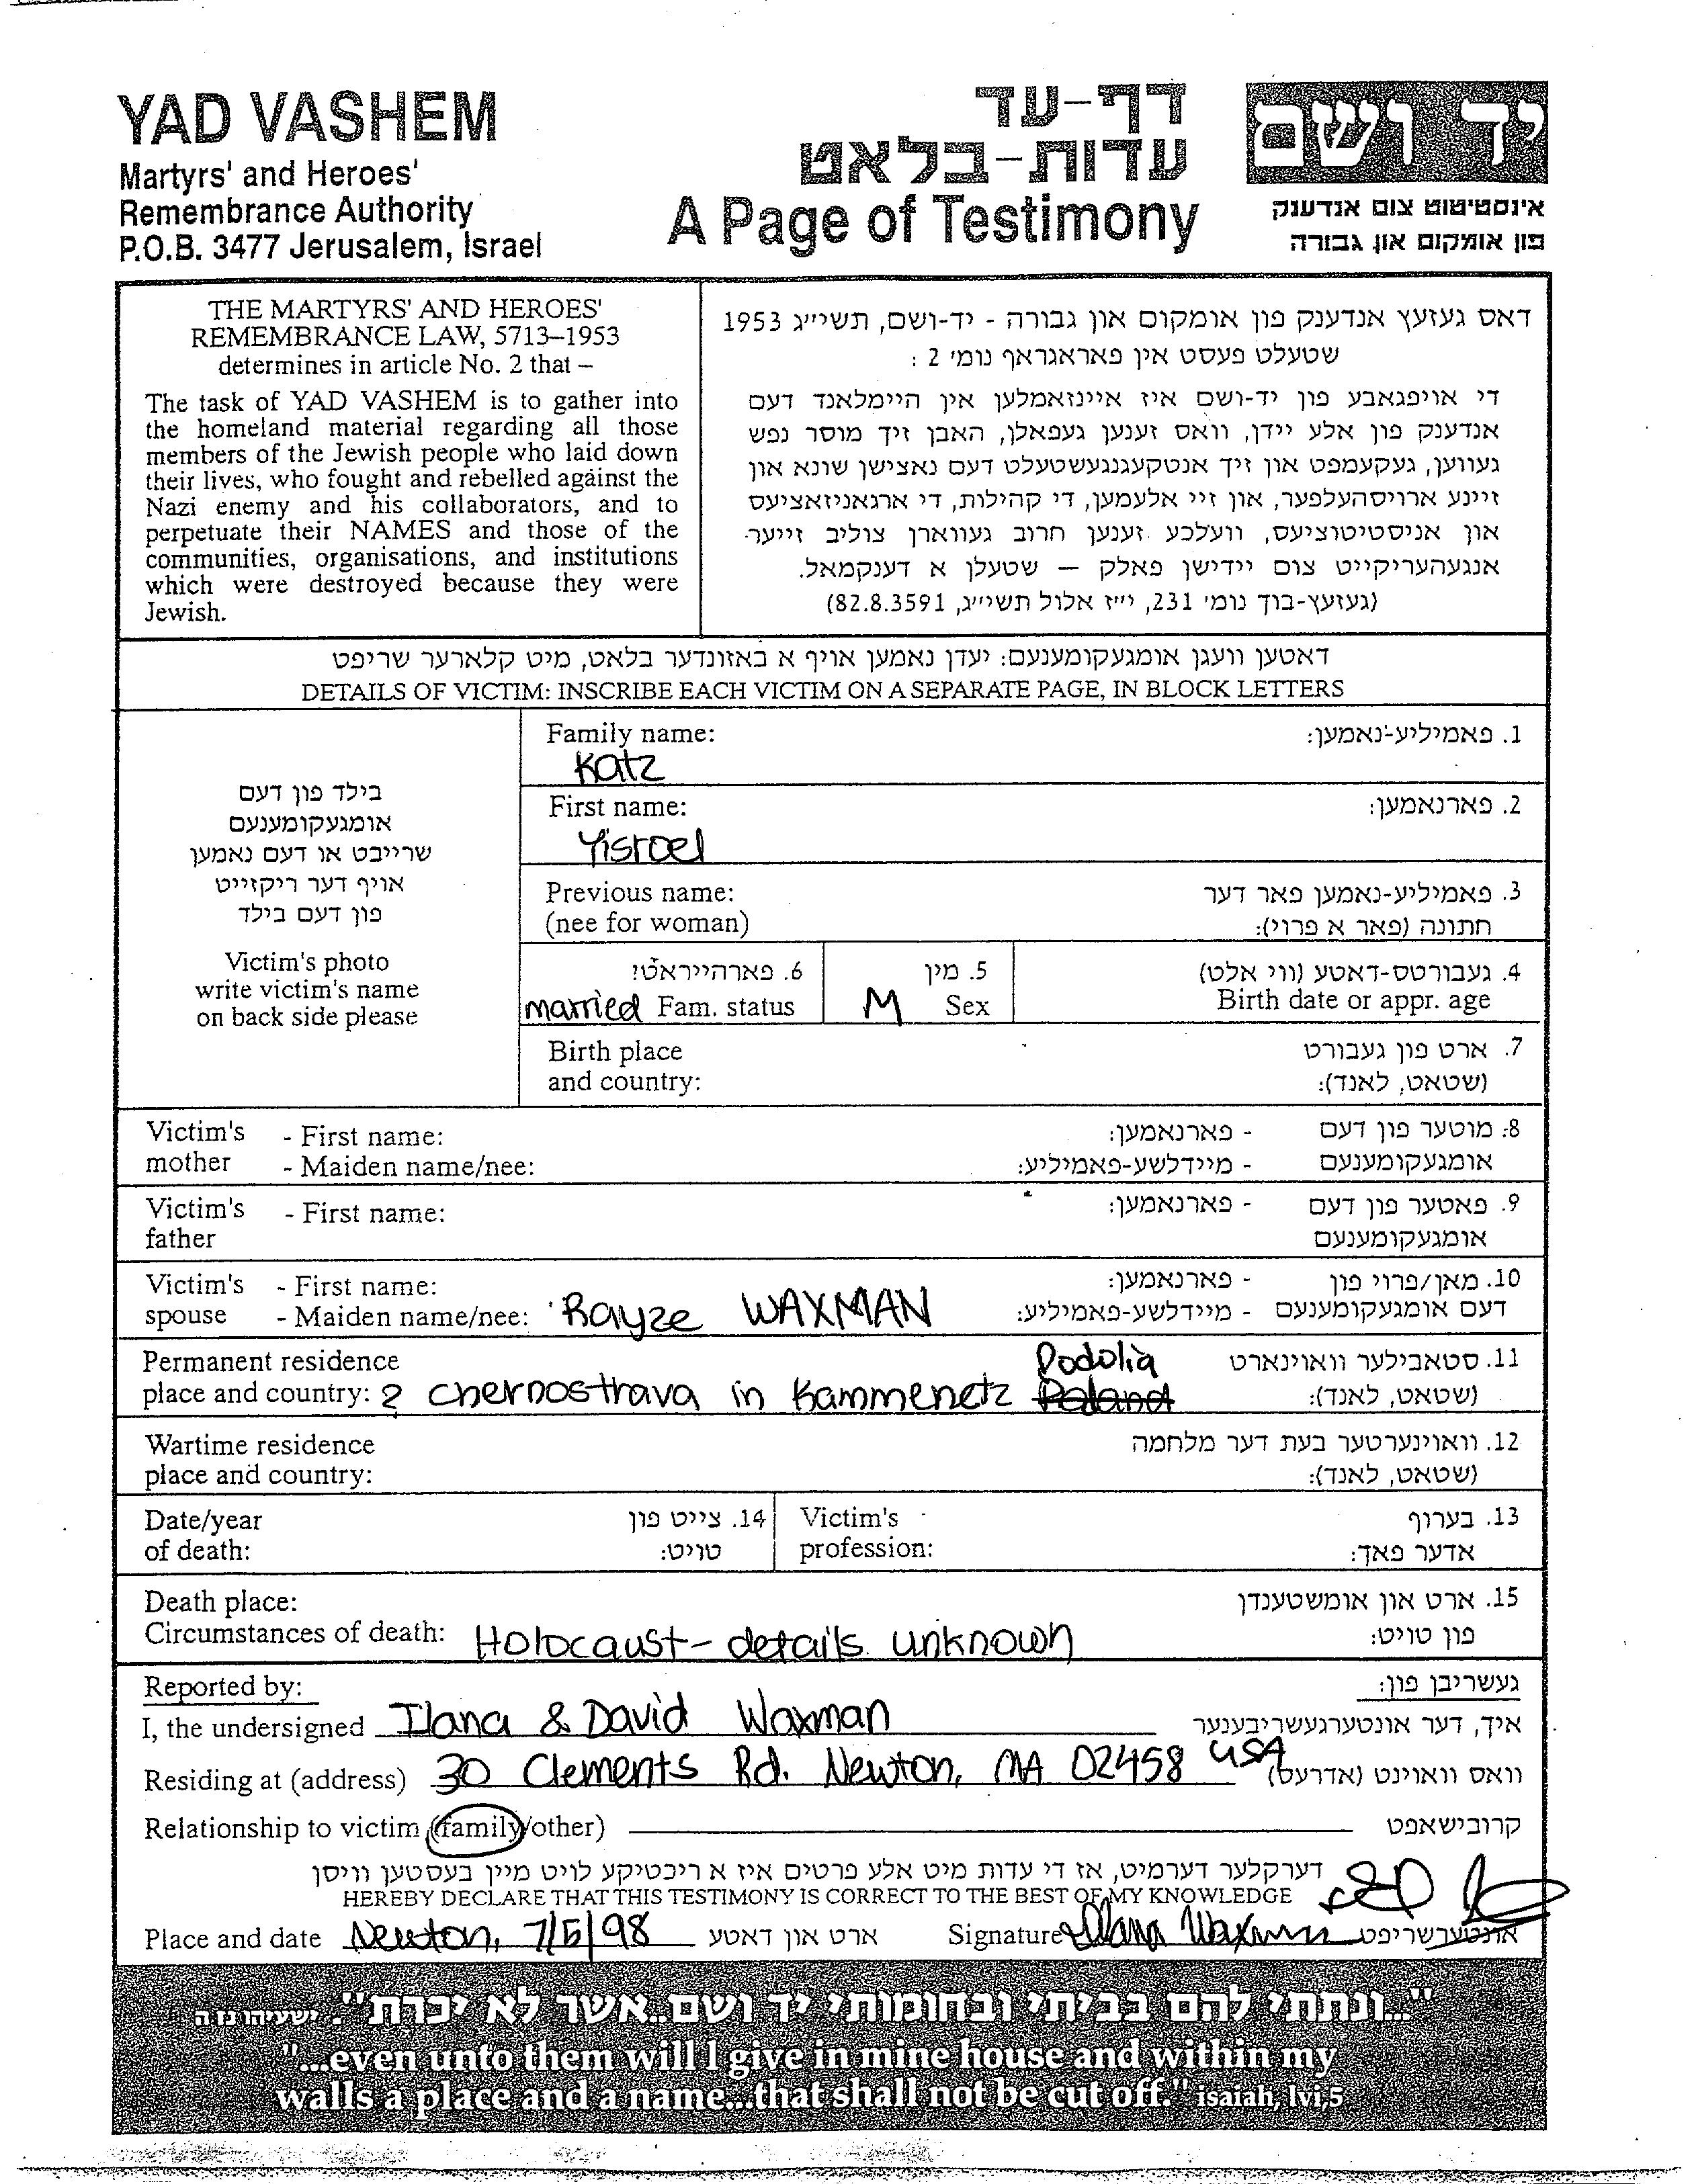 YAD VASHEM
Martyrs' and Heroes'
Remembrance Authority
P.O.B. 3477 Jerusalem, Israel
דף-עד
עדות-בלאט
A Page of Testimony
יד ושם
אינסטיטוט צום אנדענק
פון אומקום און גבורה
THE MARTYRS' AND HEROES'
REMEMBRANCE LAW, 5713–1953
determines in article No. 2 that –
The task of YAD VASHEM is to gather into
the homeland material regarding all those
members of the Jewish people who laid down
their lives, who fought and rebelled against the
Nazi enemy and his collaborators, and to
perpetuate their NAMES and those of the
communities, organisations, and institutions
which were destroyed because they were
Jewish.
דאס געזעץ אנדענק פון אומקום און גבורה - יד-ושם, תשי״ג 1953
שטעלט פעסט אין פאראגראף נומ׳ 2 :
די אויפגאבע פון יד-ושם איז איינזאמלען אין היימלאנד דעם
אנדענק פון אלע יידן, וואס זענען געפאלן, האבן זיך מוסר נפש
געווען, געקעמפט און זיך אנטקעגנגעשטעלט דעם נאצישן שונא און
זיינע ארויסהעלפער, און זיי אלעמען, די קהילות, די ארגאניזאציעס
און אניסטיטוציעס, וועלכע זענען חרוב געווארן צוליב זייער
אנגעהעריקייט צום יידישן פאלק – שטעלן א דענקמאל.
(געזעץ-בוך נומ׳ 231, י״ז אלול תשי״ג, 82.8.3591)
דאטען וועגן אומגעקומענעם: יעדן נאמען אויף א באזונדער בלאט, מיט קלארער שריפט
DETAILS OF VICTIM: INSCRIBE EACH VICTIM ON A SEPARATE PAGE, IN BLOCK LETTERS
בילד פון דעם
אומגעקומענעם
שרייבט או דעם נאמען
אויף דער ריקזייט
פון דעם בילד
Victim's photo
write victim's name
on back side please
Family name: 1. פאמיליע-נאמען:
Katz
First name: 2. פארנאמען:
Yisroel
Previous name: 3. פאמיליע-נאמען פאר דער
(nee for woman) חתונה (פאר א פרוי):
6. פארהייראט! 5. מין 4. געבורטס-דאטע (ווי אלט)
married Fam. status M Sex Birth date or appr. age
Birth place 7. ארט פון געבורט
and country: (שטאט, לאנד):
Victim's - First name: - פארנאמען: 8. מוטער פון דעם
mother - Maiden name/nee: - מיידלשע-פאמיליע: אומגעקומענעם
Victim's - First name: - פארנאמען: 9. פאטער פון דעם
father אומגעקומענעם
Victim's - First name: - פארנאמען: 10. מאן/פרוי פון
spouse - Maiden name/nee: Rayze WAXMAN - מיידלשע-פאמיליע: דעם אומגעקומענעם
Permanent residence Podolia 11. סטאבילער וואוינארט
place and country: ? chernostrava in Kammenetz Poland (שטאט, לאנד):
Wartime residence 12. וואוינערטער בעת דער מלחמה
place and country: (שטאט, לאנד):
Date/year 14. צייט פון Victim's 13. בערוף
of death: טויט: profession: אדער פאך:
Death place: 15. ארט און אומשטענדן
Circumstances of death: Holocaust - details unknown פון טויט:
Reported by: געשריבן פון:
I, the undersigned Ilana & David Waxman איך, דער אונטערגעשריבענער
Residing at (address) 30 Clements Rd. Newton, MA 02458 USA וואס וואוינט (אדרעס)
Relationship to victim (family/other) קרובישאפט
דערקלער דערמיט, אז די עדות מיט אלע פרטים איז א ריכטיקע לויט מיין בעסטען וויסן
HEREBY DECLARE THAT THIS TESTIMONY IS CORRECT TO THE BEST OF MY KNOWLEDGE
Place and date Newton, 7/5/98 ארט און דאטע Signature Ilana Waxman אונטערשריפט
"...ונתתי להם בביתי ובחומותי יד ושם..אשר לא יכרת". ישעיהו נו ה
"...even unto them will I give in mine house and within my
walls a place and a name...that shall not be cut off." isaiah, lvi,5